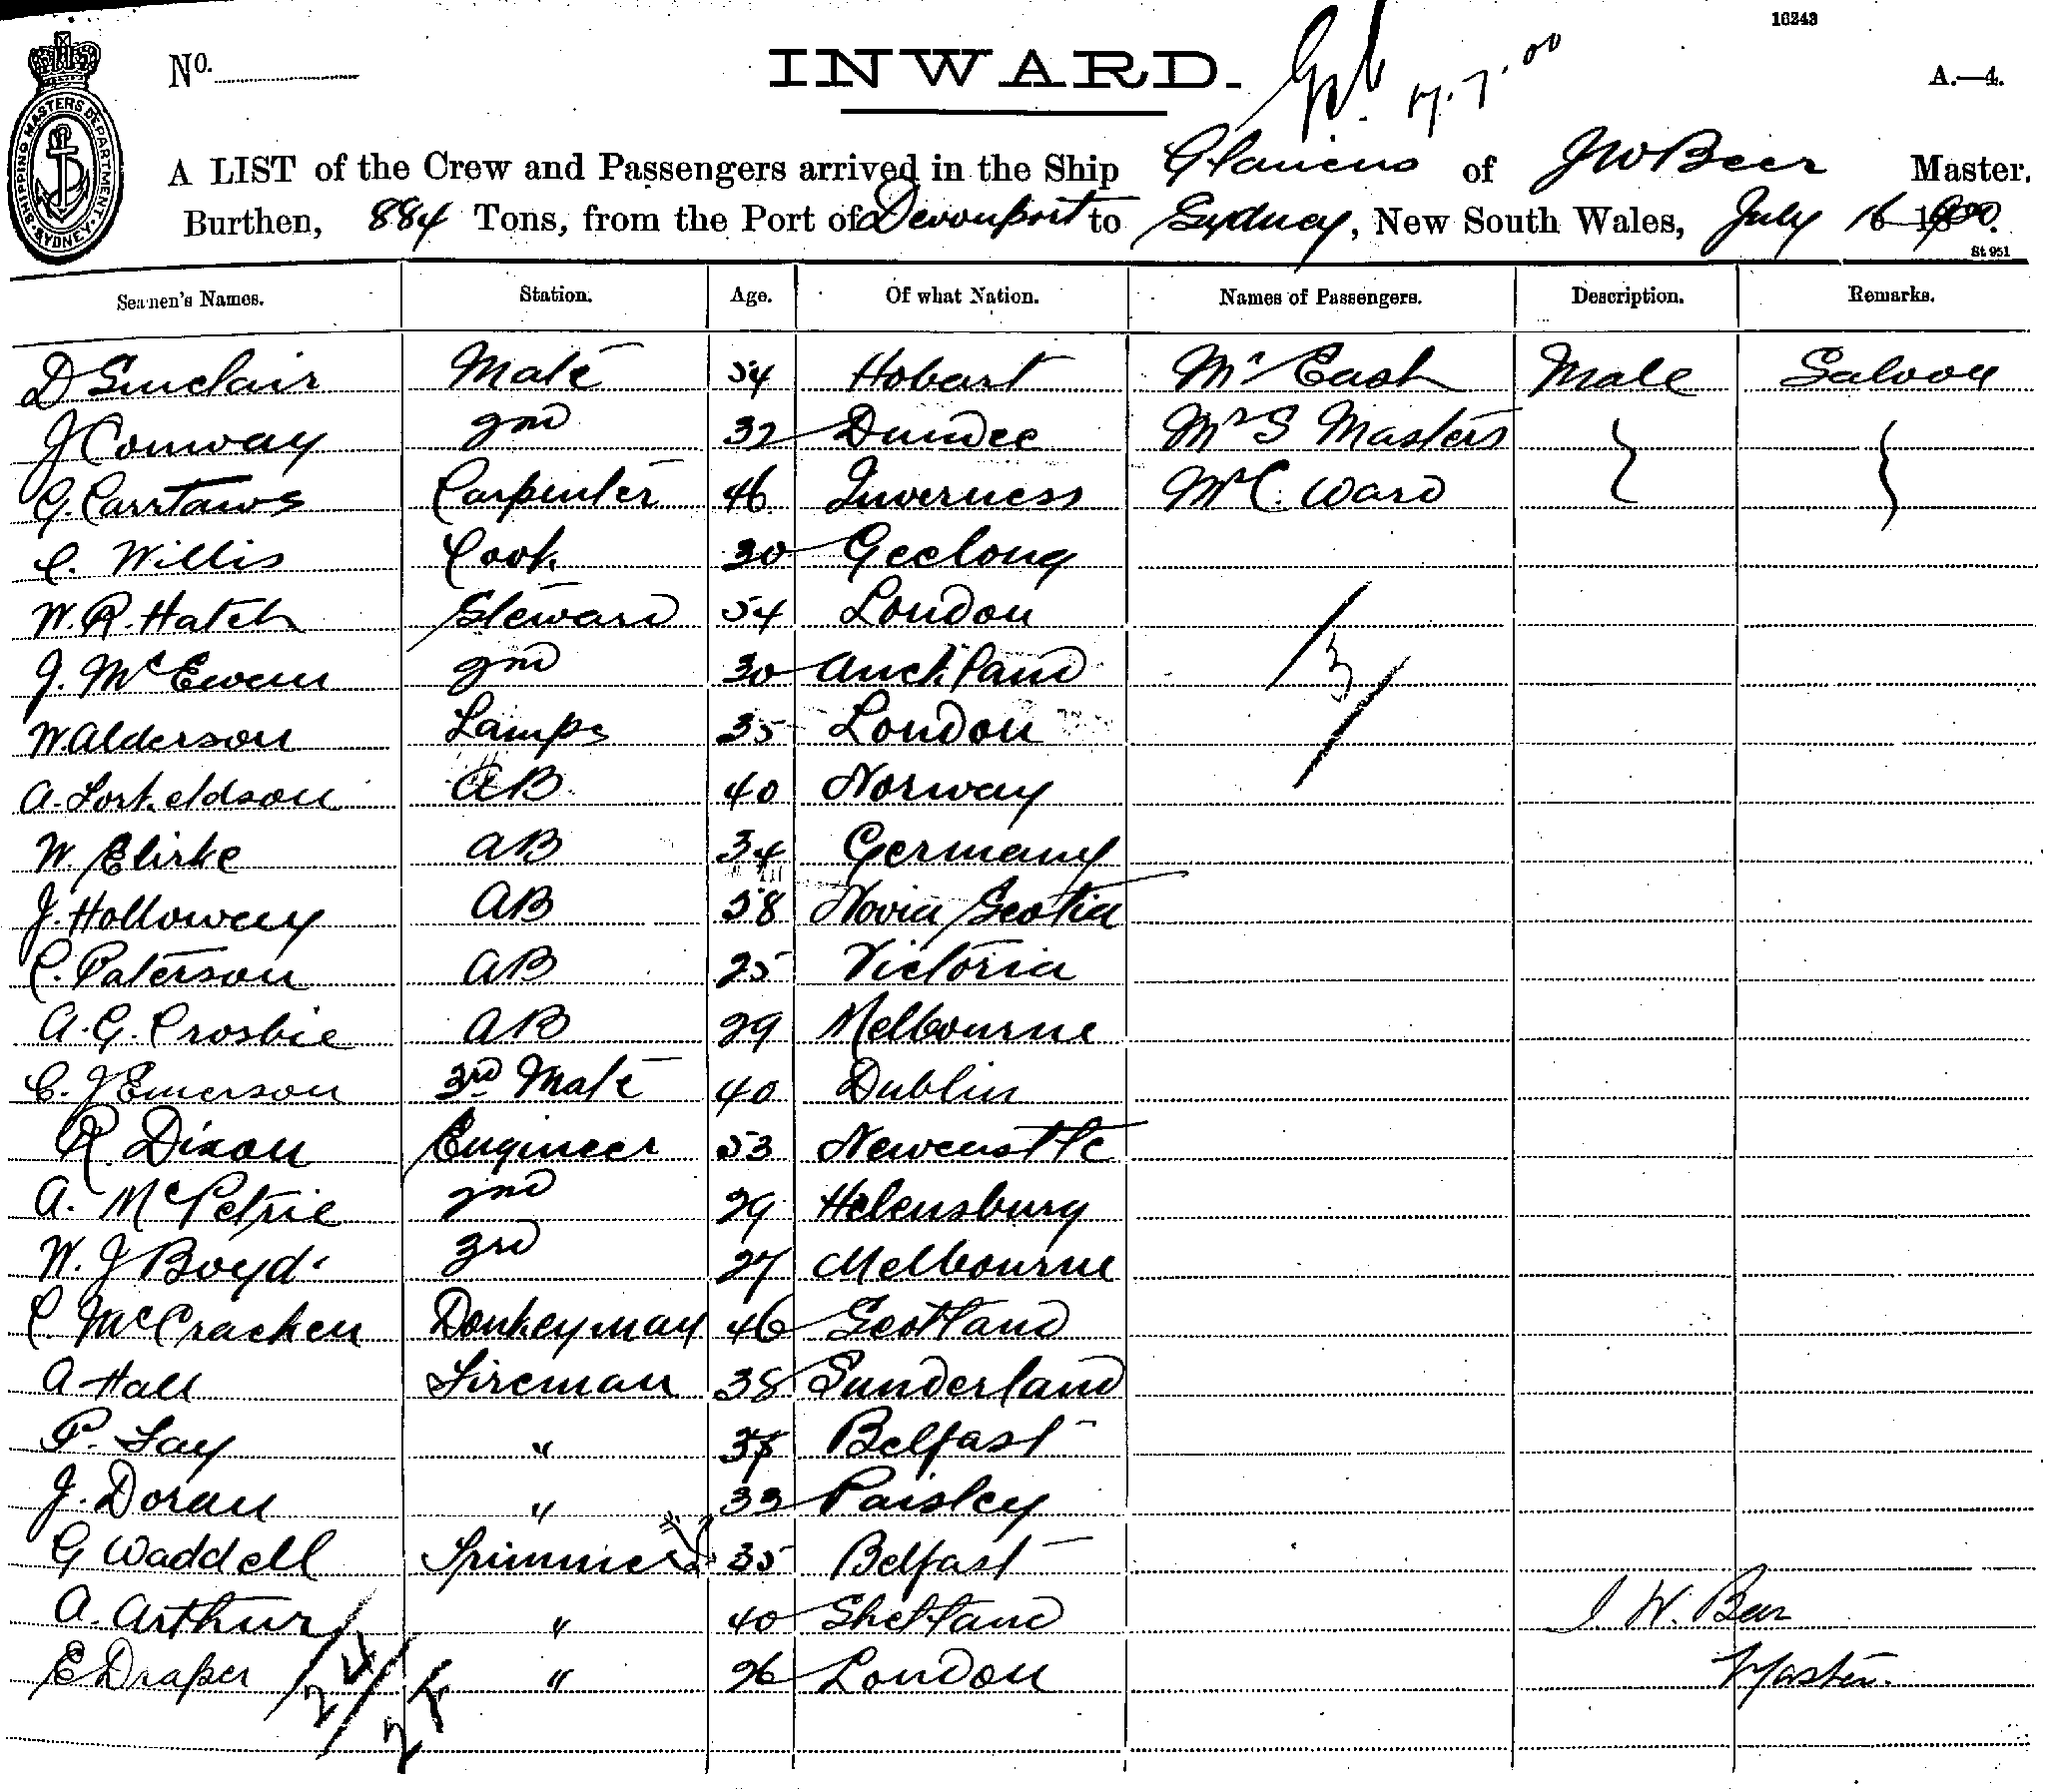 10243
No. INWARD. 17.7.00 A.—4.
SHIPPING MASTERS DEPARTMENT. SYDNEY.
A LIST of the Crew and Passengers arrived in the Ship Glaucus of J W Beer Master.
Burthen, 884 Tons, from the Port of Devonport to Sydney, New South Wales, July 16 1900.
St 951
Seamen's Names. Station. Age. Of what Nation. Names of Passengers. Description. Remarks.
D Sinclair Mate 54 Hobart Mr Cash Male Saloon
J Conway 2nd 32 Dundee Mr S Masters
G. Carrtaws Carpenter 46 Inverness Mr C. Ward
C. Willis Cook 30 Geelong
W. R. Hatch Steward 54 London
J. McEwen 2nd 30 Auckland
W Alderson Lamps 35 London
3
A. Torkeldson AB 40 Norway
W. Elirke AB 34 Germany
J. Holloway AB 58 Novia Scotia
C. Paterson AB 25 Victoria
A. G. Crosbie AB 29 Melbourne
C. J Emerson 3rd Mate 40 Dublin
R. Dixon Engineer 53 Newcastle
A. McPetrie 2nd 29 Helensburg
W. J Boyd 3rd 27 Melbourne
C. McCracken Donkeyman 46 Scotland
A Hall Fireman 38 Sunderland
P. Fay " 37 Belfast
J. Doran " 33 Paisley
G Waddell Trimmer 35 Belfast
A. Arthur " 40 Shetland J. W. Beer
E Draper " 26 London Master.
24
24